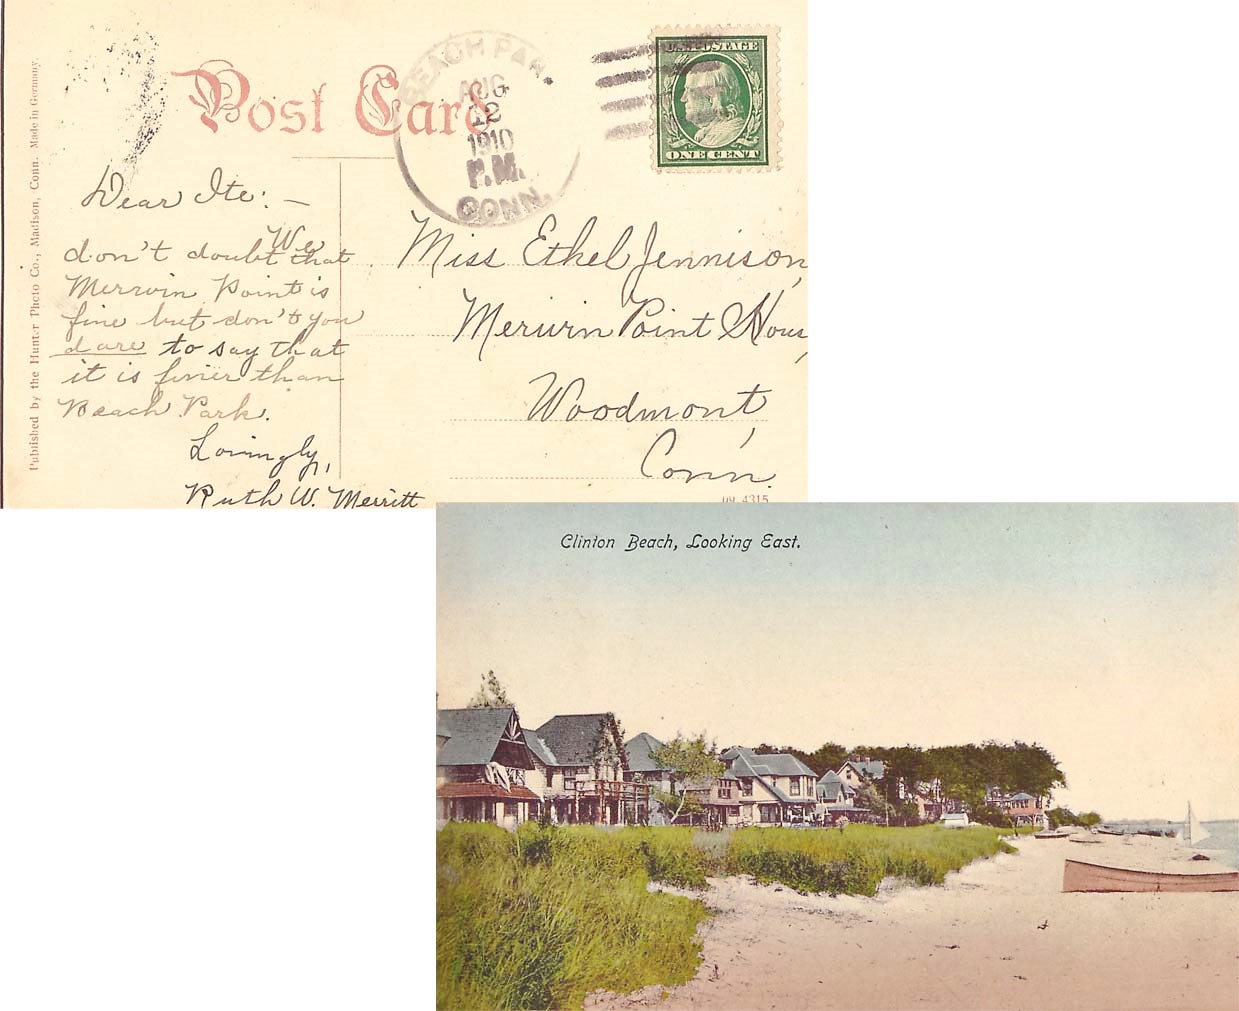 Post Card
BEACH PAR.
AUG
12
1910
P.M.
CONN.
U.S. POSTAGE
ONE CENT
Published by the Hunter Photo Co., Madison, Conn. Made in Germany.
Dear Ite: —
We
don't doubt that
Merwin Point is
fine but don't you
dare to say that
it is finer than
Beach Park.
Lovingly,
Ruth W. Merritt
Miss Ethel Jennison,
Merwin Point Hous
Woodmont,
Conn.
4315
Clinton Beach, Looking East.